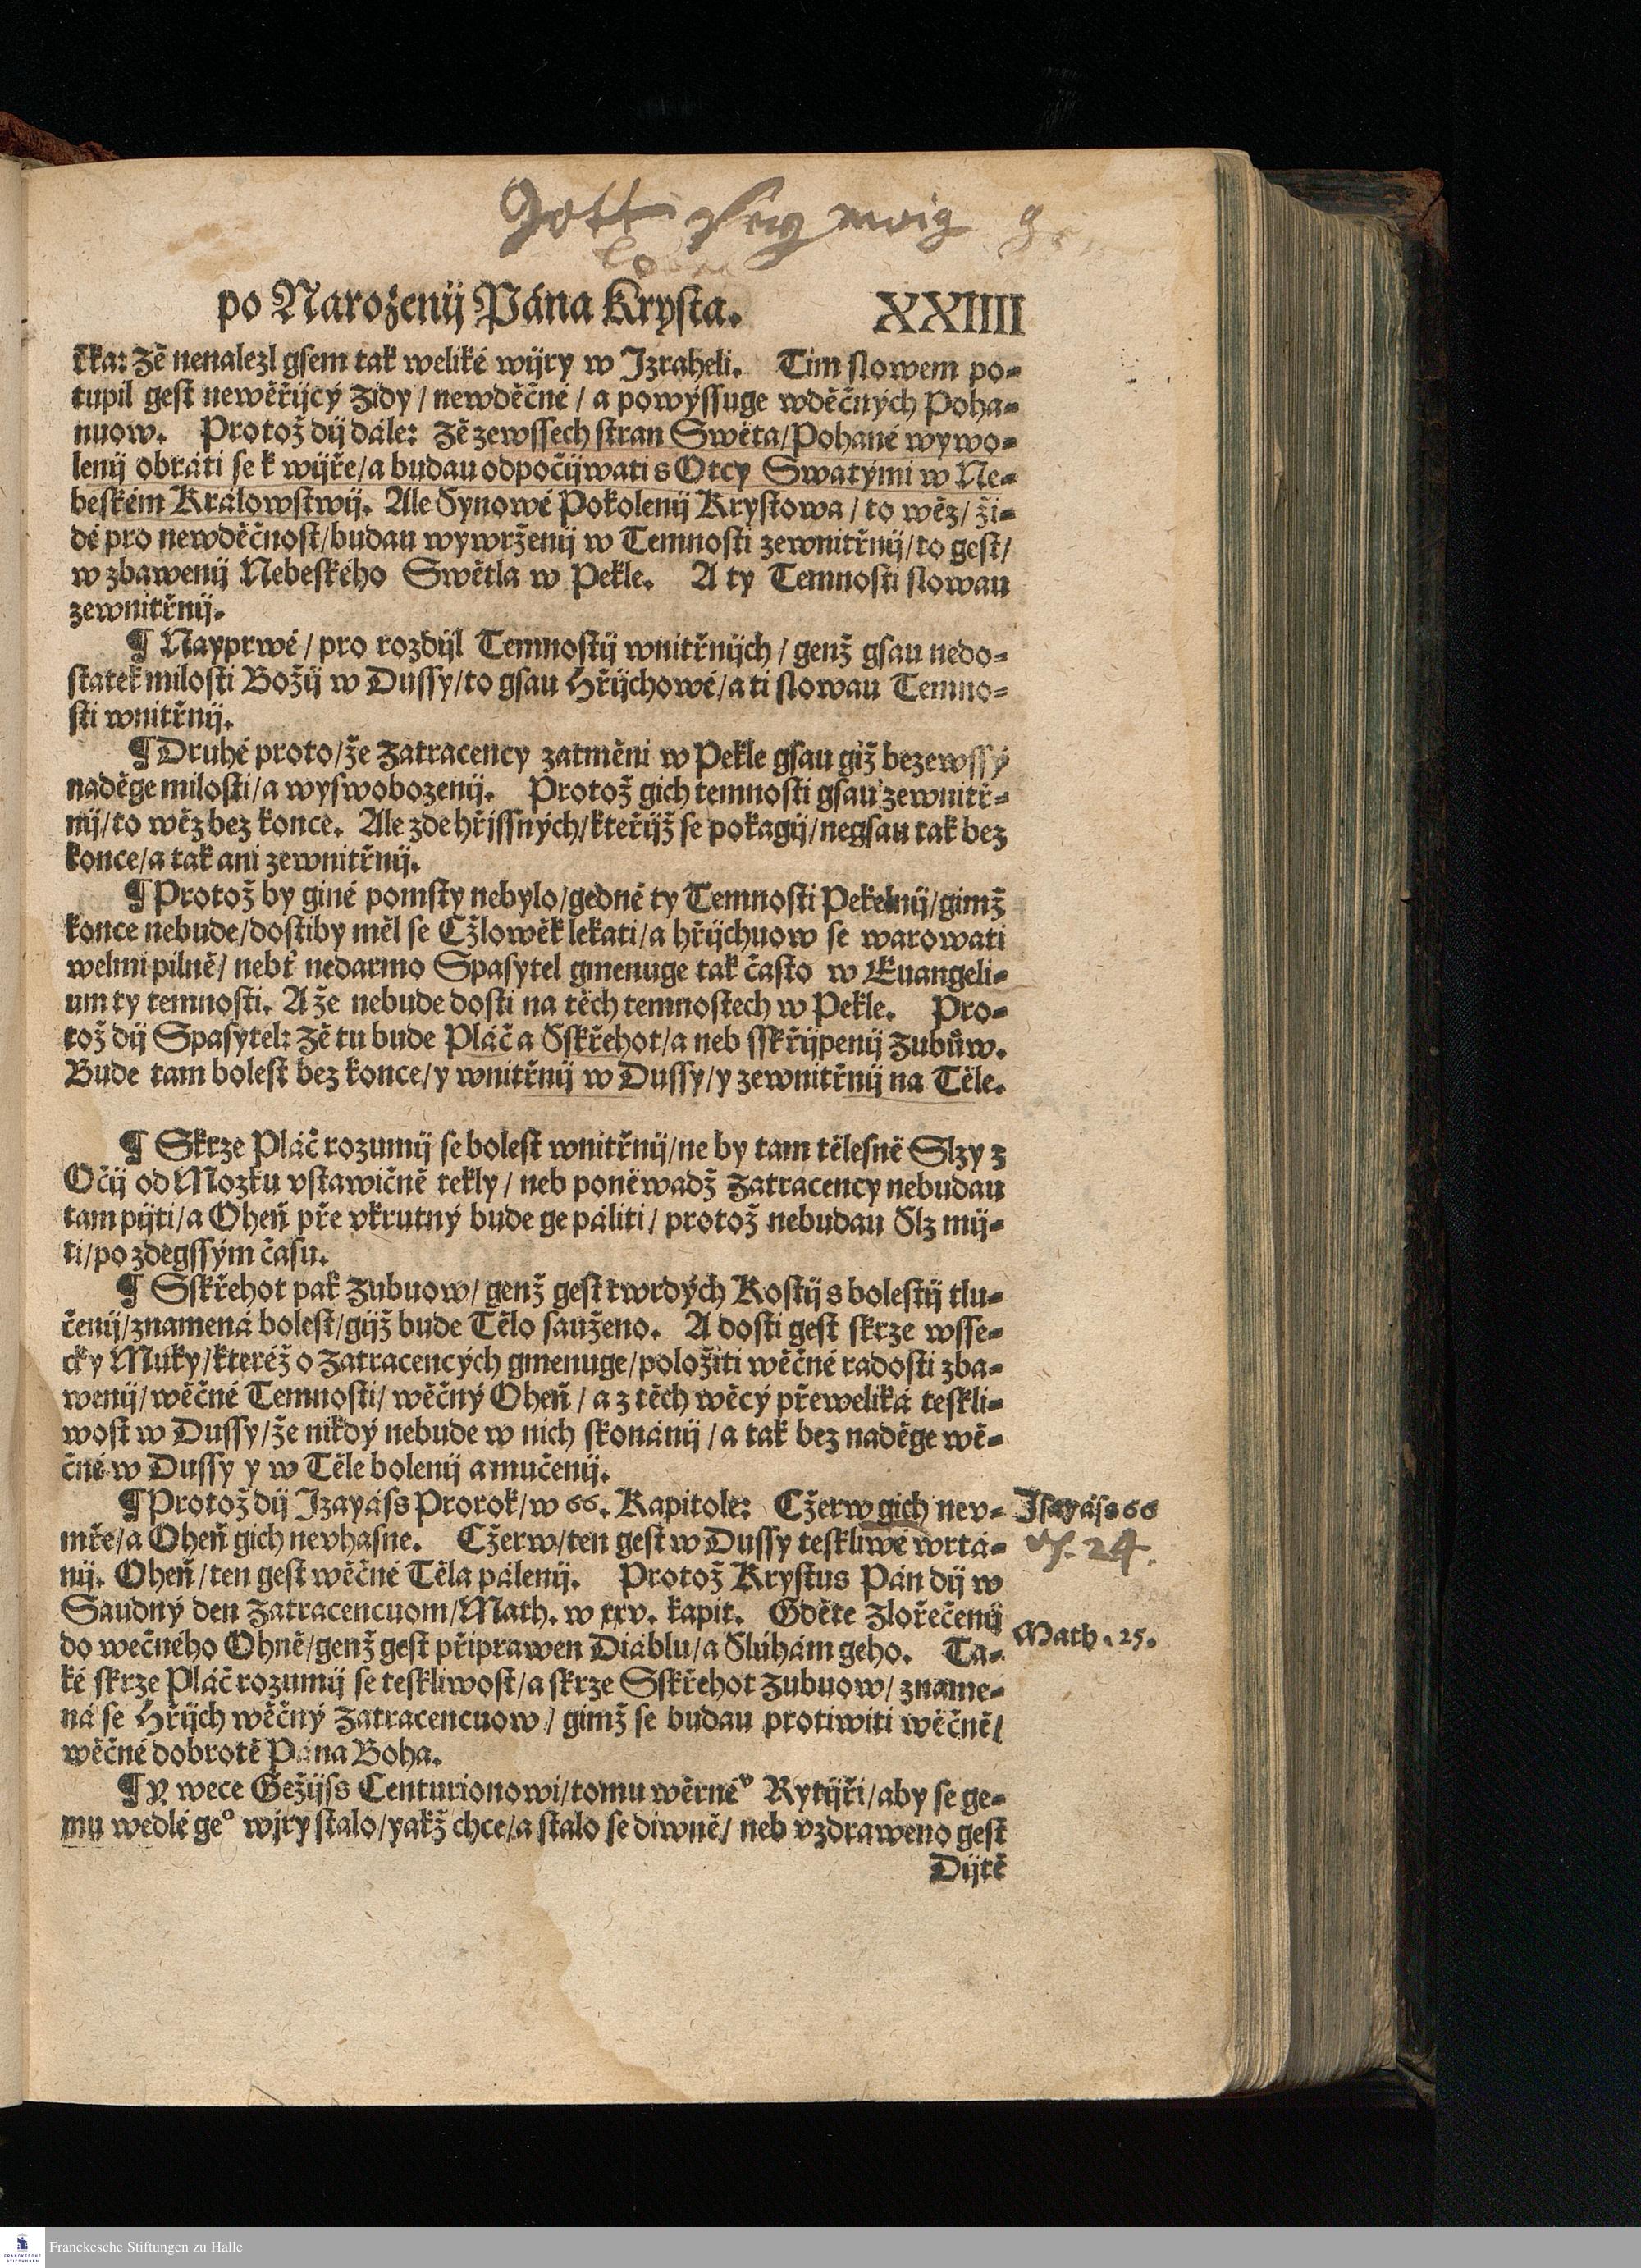 Gott sey ewig
po Narozenij Pána Krysta. XXIIII
řka: Zě nenalezl gsem tak weliké wijry w Izraheli. Tim slowem po-
tupil gest newěřijcý Židy / newděčné / a powýssuge wděčných Poha-
nuow. Protož dij dále: Zě zewssech stran Swěta/Pohané wywo-
lenij obrátí se k wijře/a budau odpočijwati s Otcy Swatými w Ne-
beském Králowstwij. Ale Synowé Pokolenij Krystowa / to wěz/ ži-
dé pro newděčnost/budau wywrženij w Temnosti zewnitřnij/to gest/
w zbawenij Nebeského Swětla w Pekle. A ty Temnosti slowau
zewnitřnij.
¶ Nayprwé / pro rozdijl Temnostij wnitřnijch / genž gsau nedo-
statek milosti Božij w Dussy/to gsau Hřijchowé/a ti slowau Temno-
sti wnitřnij.
¶ Druhé proto/že Zatracency zatměni w Pekle gsau giž bezewssý
naděge milosti/a wyswobozenij. Protož gich temnosti gsau zewnitř-
nij/to wěz bez konce. Ale zde hřijssných/kteřijž se pokagij/negsau tak bez
konce/a tak ani zewnitřnij.
¶ Protož by giné pomsty nebylo/gedné ty Temnosti Pekelnij/gimž
konce nebude/dostiby měl se Cžlowěk lekati/a hřijchuow se warowati
welmi pilně/ nebť nedarmo Spasytel gmenuge tak často w Euangeli-
um ty temnosti. A že nebude dosti na těch temnostech w Pekle. Pro-
tož dij Spasytel: Zě tu bude Pláč a Sskřehot/a neb sskřijpenij Zubůw.
Bude tam bolest bez konce/y wnitřnij w Dussy/y zewnitřnij na Těle.
¶ Skrze Pláč rozumij se bolest wnitřnij/ne by tam tělesně Slzy z
Očij od Mozku vstawičně tekly / neb poněwadž Zatracency nebudau
tam pijti/a Oheň pře vkrutný bude ge páliti / protož nebudau Slz mij-
ti/po zdegssým času.
¶ Sskřehot pak Zubuow/ genž gest twrdých Kostij s bolestij tlu-
čenij/znamená bolest/gijž bude Tělo sauženo. A dosti gest skrze wsse-
cky Múky/kteréž o Zatracencých gmenuge/položiti wěčné radosti zba-
wenij/wěčné Temnosti/ wěčný Oheň / a z těch wěcý přeweliká teskli-
wost w Dussy/že nikdý nebude w nich skonánij / a tak bez naděge wě-
čné w Dussy y w Těle bolenij a mučenij.
¶ Protož dij Izayáss Prorok/w 66. Kapitole: Cžerw gich nev-
mře/a Oheň gich nevhasne. Cžerw/ten gest w Dussy teskliwé wrtá-
nij. Oheň/ten gest wěčné Těla pálenij. Protož Krystus Pán dij w
Saudný den Zatracencuom/Math. w xxv. kapit. Gděte Zlořečenij
do wečného Ohně/genž gest připrawen Diáblu/a Slúhám geho. Ta-
ké skrze Pláč rozumij se teskliwost/a skrze Sskřehot Zubuow/ zname-
ná se Hřijch wěčný Zatracencuow / gimž se budau protiwiti wěčně/
wěčné dobrotě Pána Boha.
¶ Y wece Gežijss Centurionowi/tomu wěrnéᵛ Rytijři/aby se ge-
mu wedlé ge° wjry stalo/yakž chce/a stalo se diwně/ neb vzdraweno gest
Dijtě
Isayáss 66
V. 24.
Math. 25.
FRANCKESCHE
STIFTUNGEN
Franckesche Stiftungen zu Halle